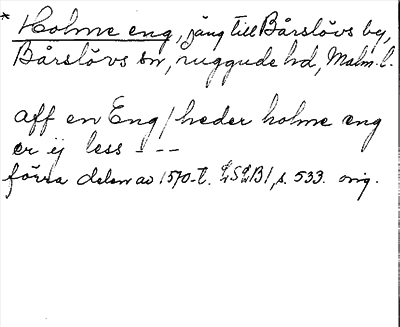 * Holme eng, jäng till Bårslövs by,
Bårslövs sn, ruggude hd, Malm. l.
aff en Eng / heder holme eng
er ij less - - -
förra delen av 1570-t. LSLB1, s. 533. orig.